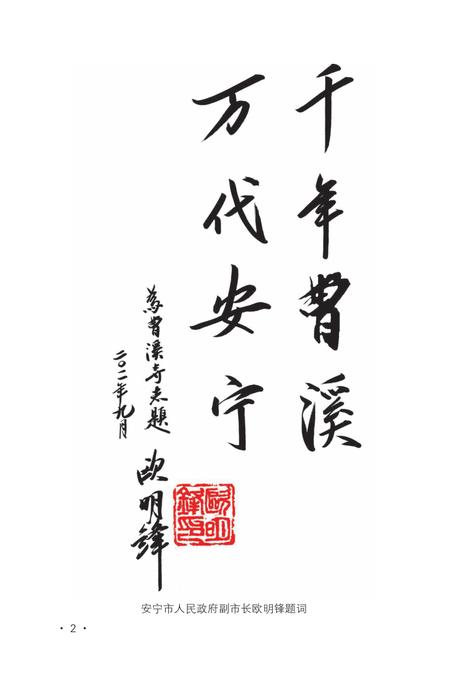 千年曹溪
万代安宁
为曹溪寺志题
二〇二一年九月
欧明锋
欧明锋印
安宁市人民政府副市长欧明锋题词
· 2 ·